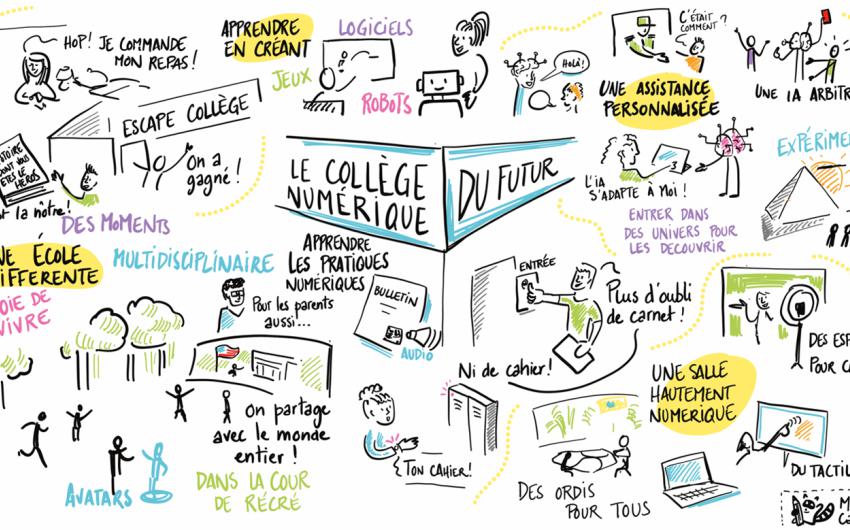 HOP! JE COMMANDE
MON REPAS!
APPRENDRE
EN CRÉANT
LOGICIELS
JEUX
ROBOTS
HOLÀ!
C'ÉTAIT
COMMENT?
UNE ASSISTANCE
PERSONNALISÉE
UNE IA ARBITR
ESCAPE COLLÈGE
On a
gagné!
DONT VOUS
ÊTES LE
HÉROS
la nôtre!
DES MOMENTS
LE COLLÈGE
NUMÉRIQUE
DU FUTUR
L'IA
S'ADAPTE À MOI!
ENTRER DANS
DES UNIVERS POUR
LES DECOUVRIR
EXPÉRIME
NE ÉCOLE
IFFERENTE
OIE DE
VIVRE
MULTIDISCIPLINAIRE
APPRENDRE
LES PRATIQUES
NUMÉRIQUES
Pour les parents
aussi...
BULLETIN
AUDIO
ENTRÉE
Plus d'oubli
de carnet!
Ni de cahier!
DES ESP
POUR C
UNE SALLE
HAUTEMENT
NUMERIQUE
On partage
avec le monde
entier!
DANS LA COUR
DE RÉCRÉ
AVATARS
TON CAHIER!
DES ORDIS
POUR TOUS
DU TACTIL